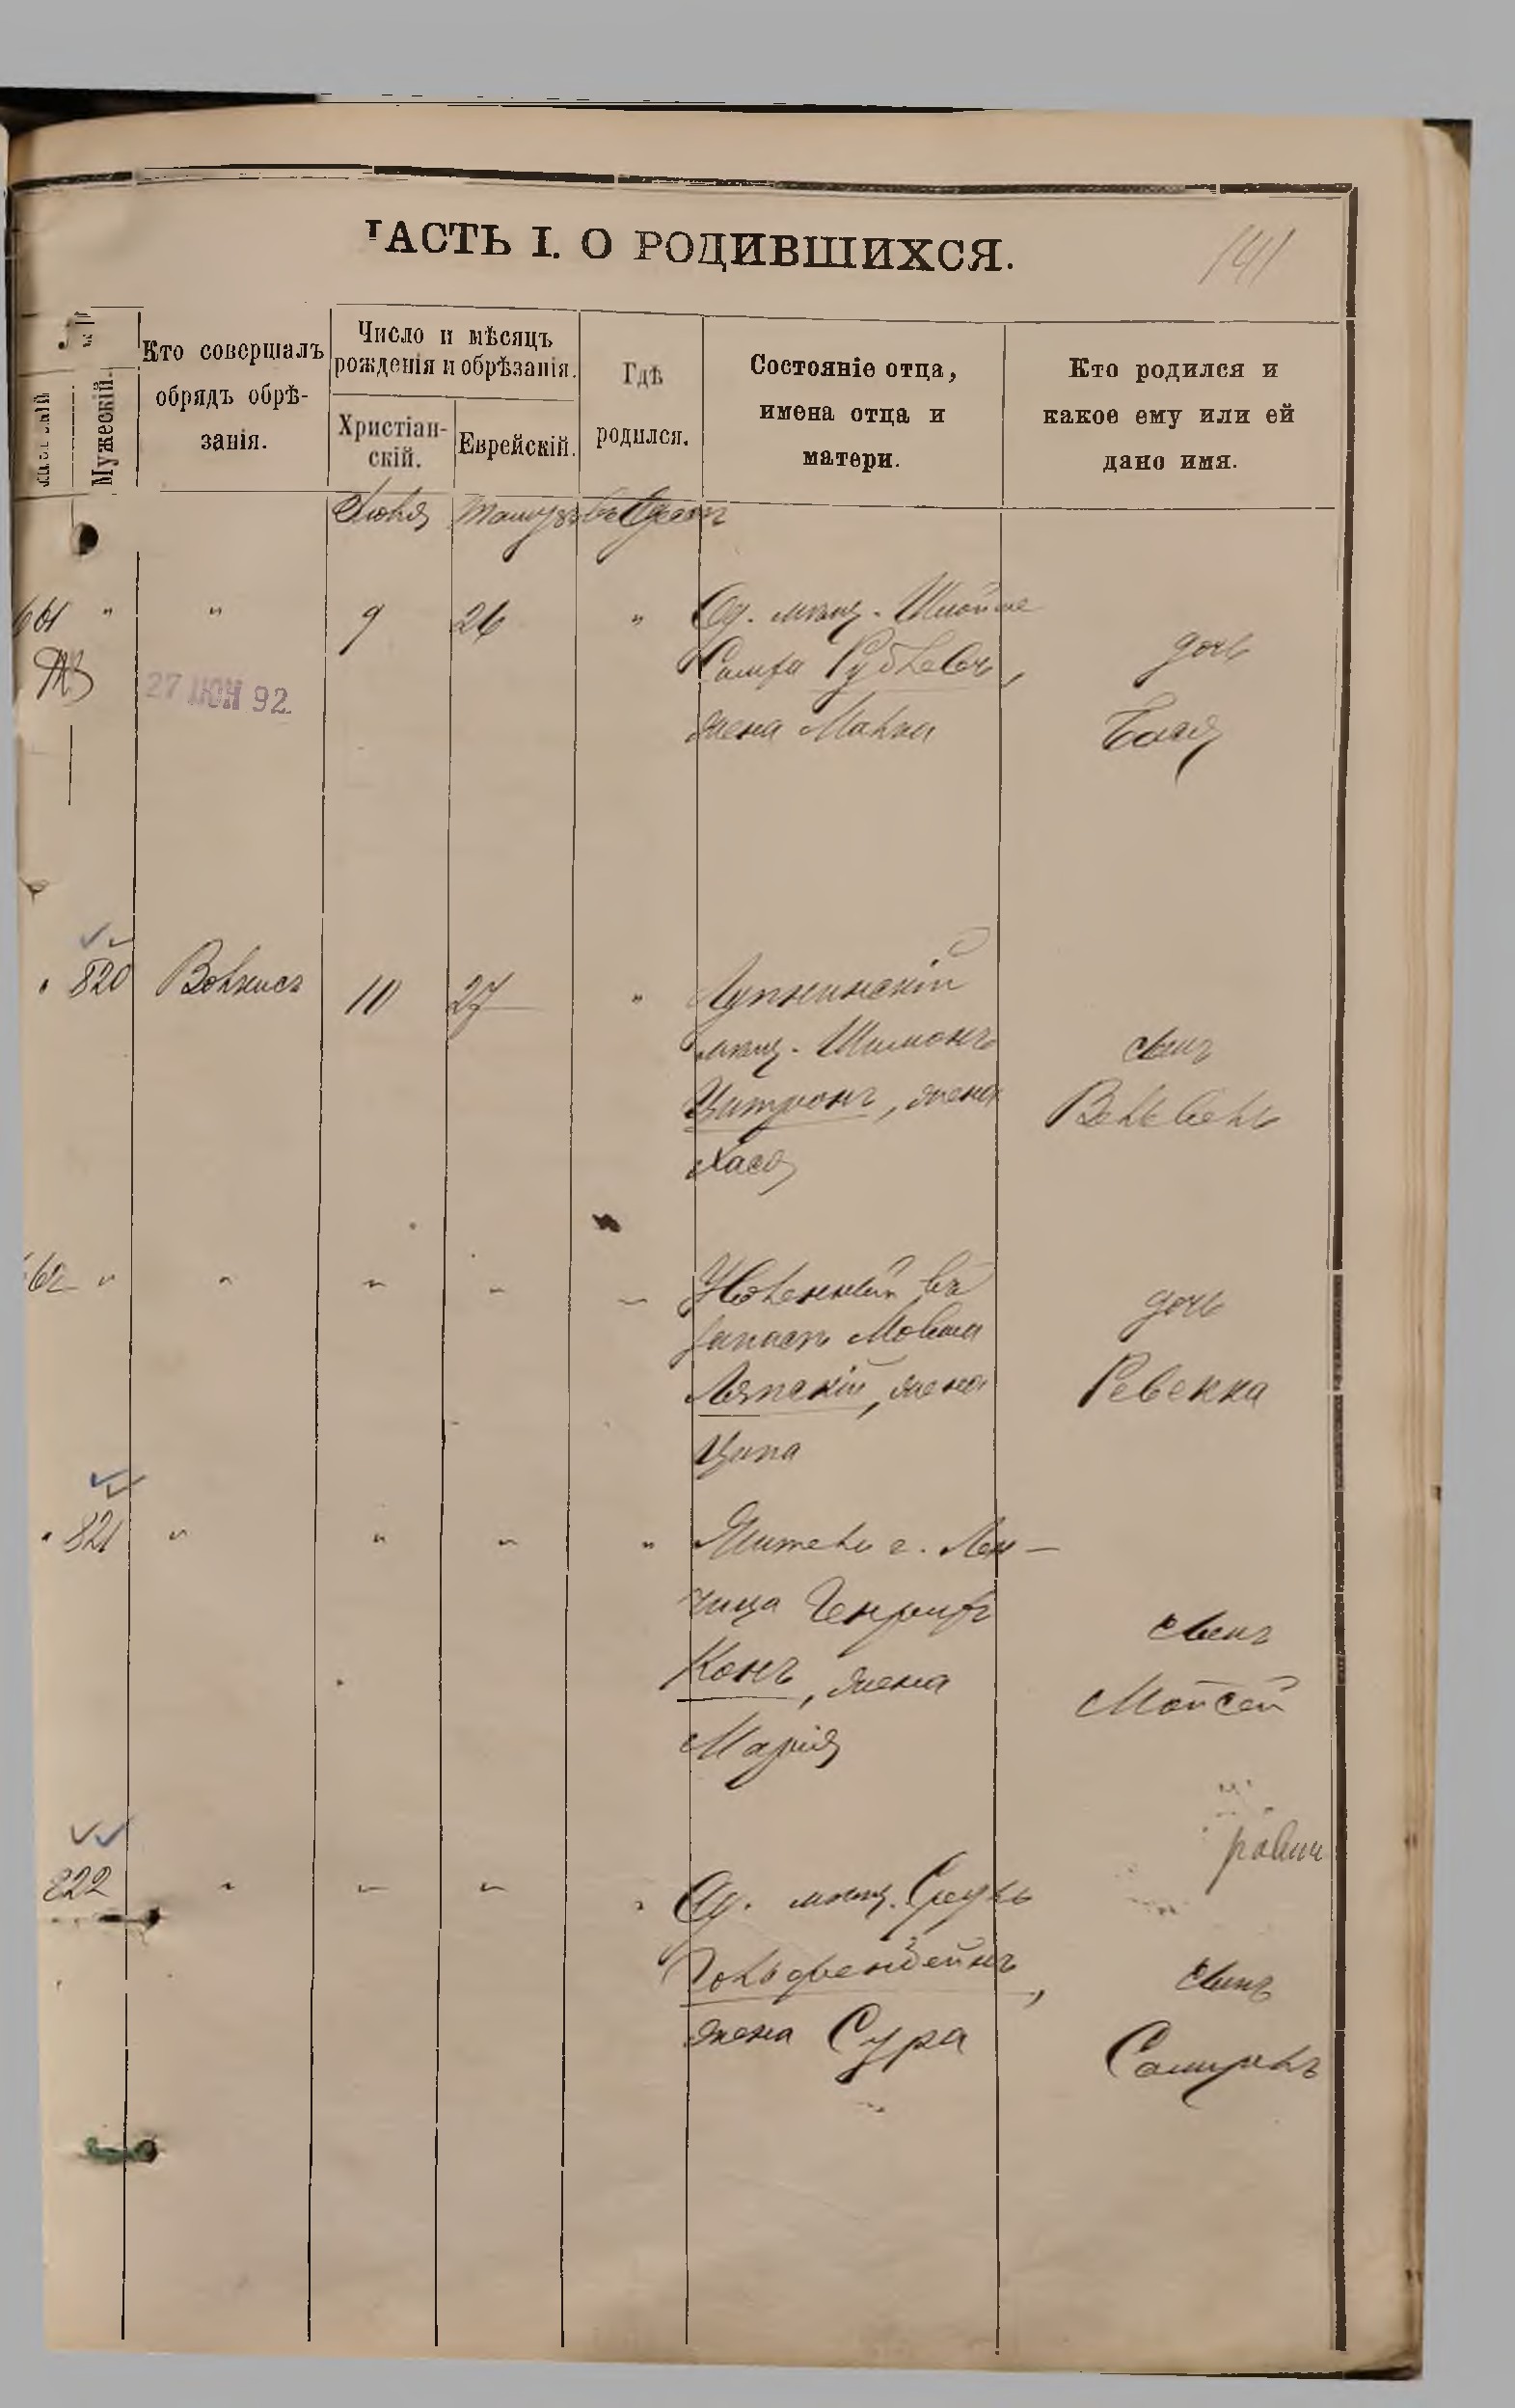 ЧАСТЬ I. О РОДИВШИХСЯ.
141
Мужескій.
Кто совершалъ
обрядъ обрѣ-
занія.
Число и мѣсяцъ
рожденія и обрѣзанія.
Христіан-
скій.
Еврейскій.
Гдѣ
родился.
Состояніе отца,
имена отца и
матери.
Кто родился и
какое ему или ей
дано имя.
Іюля Тамузъ въ Одессѣ
661 " " 9 26 " Од. мѣщ. Шлойме
Рубель,
жена Малка
дочь
Бася
27 ІЮН 92
820 10 27 "
мѣщ. Шимонъ
Цитронъ, жена
Хася
сынъ
Вельвель
662 " " " " " Уволенный въ
запасъ Мовша
Ляпскій, жена
Ципа
дочь
Ревекка
821 " " " " Житель г. Лен-
чица Генрихъ
Конъ, жена
Марія
сынъ
Мойсей
822 " " " " Од. мѣщ. Сруль
жена Сура
сынъ
Самуилъ